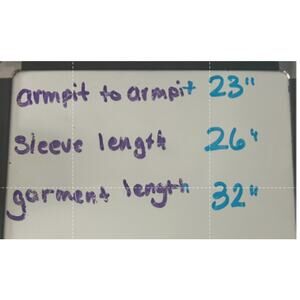 armpit to armpit 23"
sleeve length 26"
garment length 32"